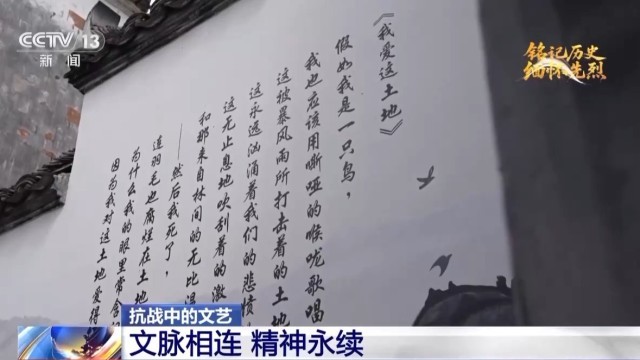 CCTV 13
新闻
铭记历史
缅怀先烈
《我爱这土地》
假如我是一只鸟，
我也应该用嘶哑的喉咙歌唱
这被暴风雨所打击着的土地
这永远汹涌着我们的悲愤
这无止息地吹刮着的激
和那来自林间的无比温
——然后我死了，
连羽毛也腐烂在土地
为什么我的眼里常含
因为我对这土地爱得
抗战中的文艺
文脉相连 精神永续